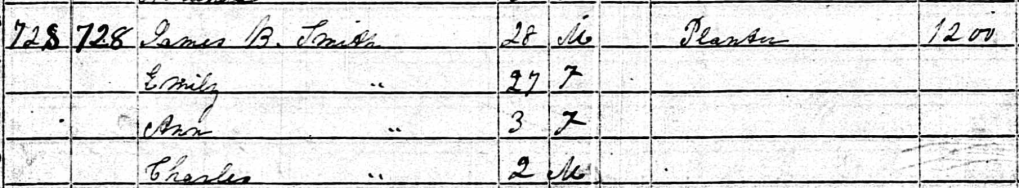 728 728 James B. Smith 28 M Planter 1200
Emily " 27 F
Ann " 3 F
Charles " 2 M